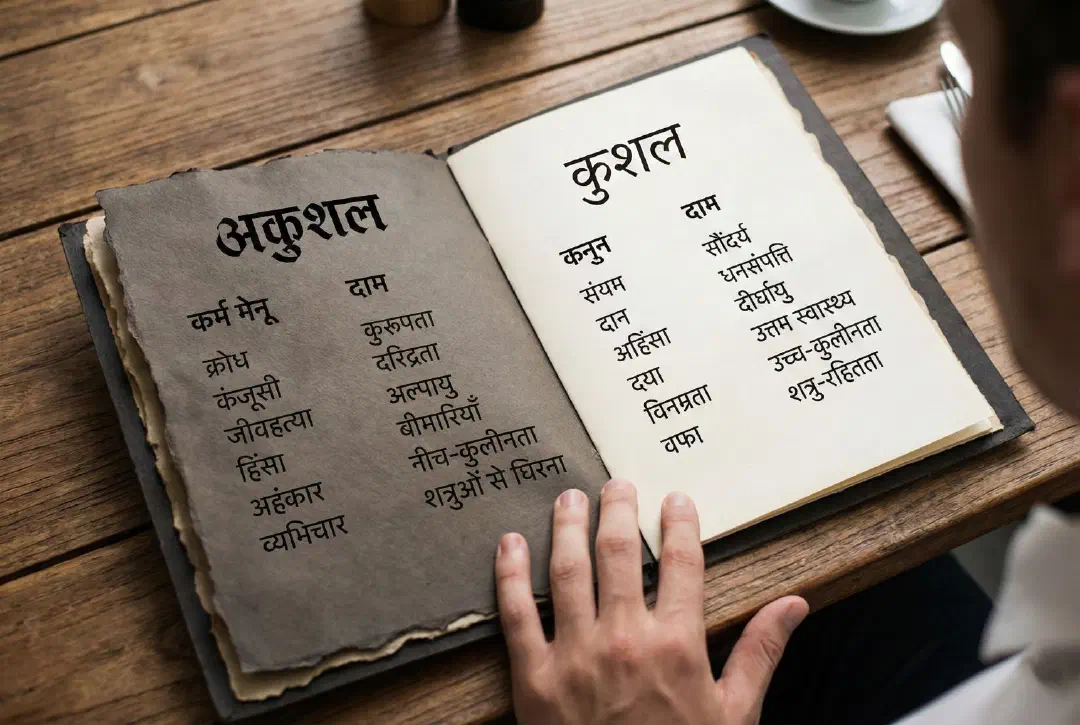 अकुशल
कर्म मेनू
क्रोध
कंजूसी
जीवहत्या
हिंसा
अहंकार
व्यभिचार
दाम
कुरूपता
दरिद्रता
अल्पायु
बीमारियाँ
नीच-कुलीनता
शत्रुओं से घिरना
कुशल
कनुन
संयम
दान
अहिंसा
दया
विनम्रता
वफा
दाम
सौंदर्य
धनसंपत्ति
दीर्घायु
उत्तम स्वास्थ्य
उच्च-कुलीनता
शत्रु-रहितता